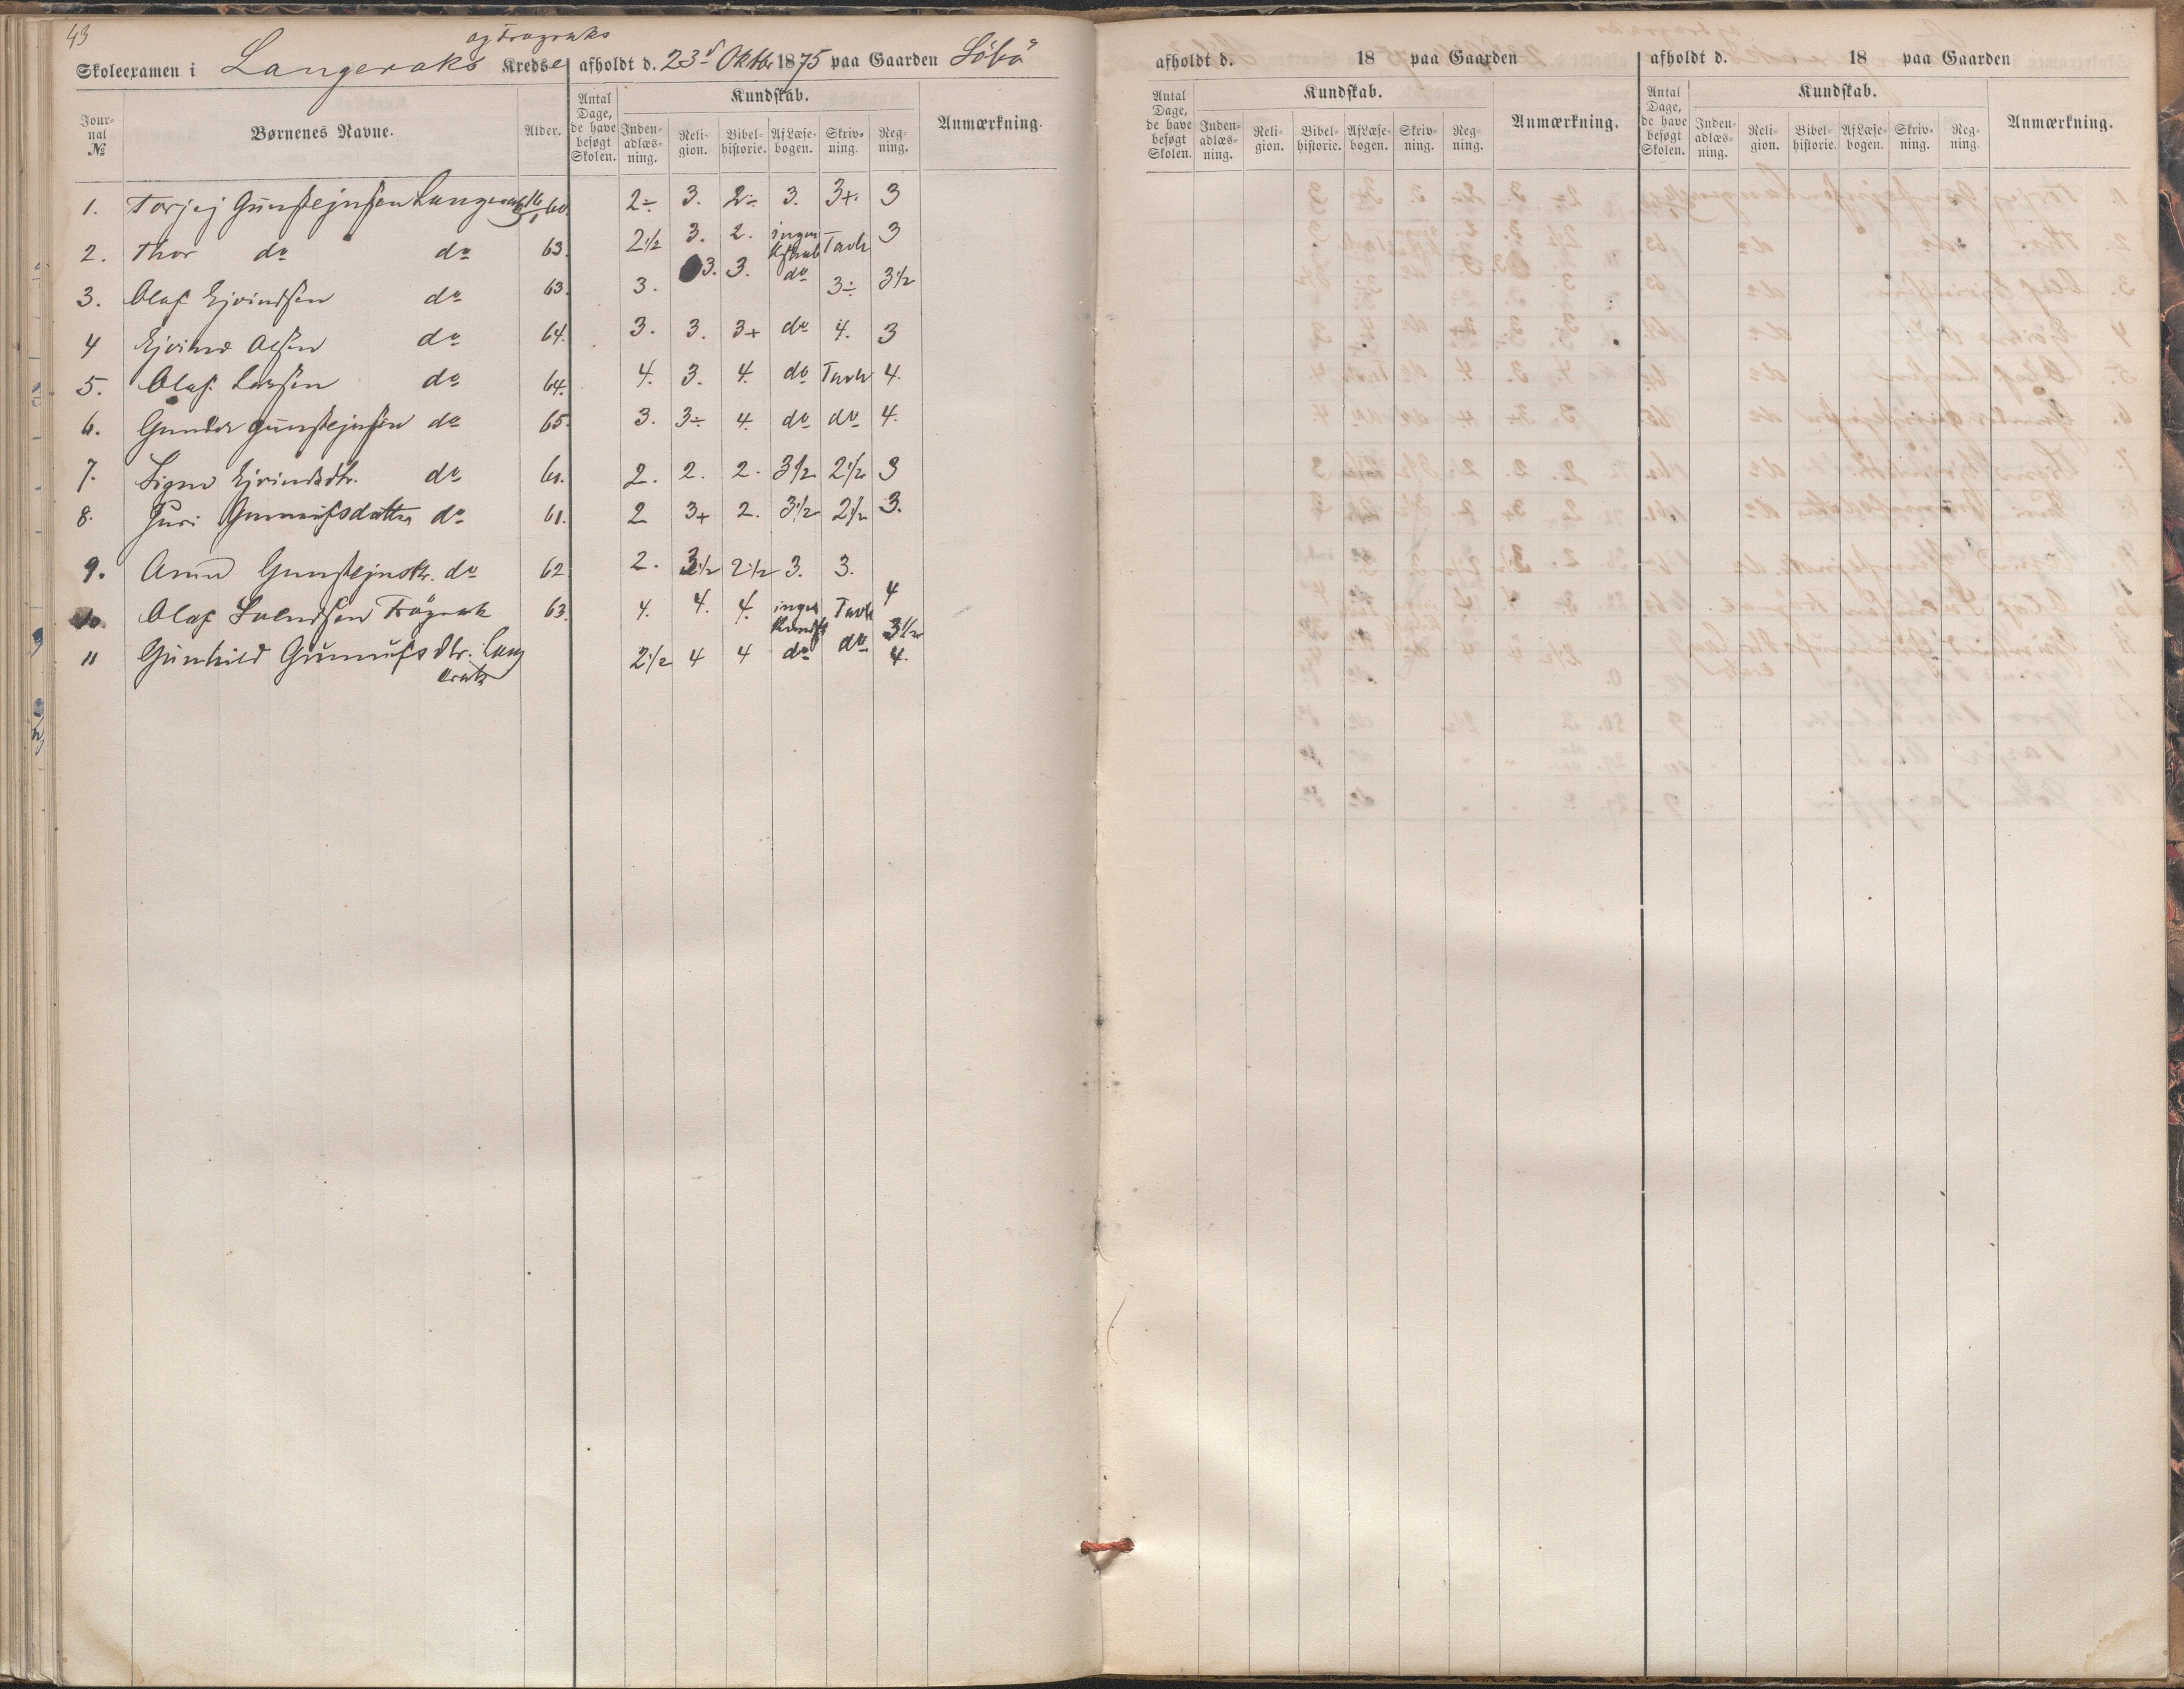 43
og Trøgeraks
Skoleexamen i Langeraks Kredse afholdt d. 23d Oktbr 1875 paa Gaarden Söbö
Jour-nal № Børnenes Navne. Alder. Antal Dage, de have besøgt Skolen. Kundskab. Inden-adlæs-ning. Reli-gion. Bibel-historie. Af Læse-bogen. Skriv-ning. Reg-ning. Anmærkning.
1. Torjej Gunstejnsen Langerak 60 2÷ 3. 2÷ 3. 3+. 3
2. Thor do do 63. 2 1/2 3. 2. ingen Kskab Tavle 3
3. Olaf Ejvindsen do 63. 3. 3. 3. do 3÷ 3 1/2
4 Ejvind Olsen do 64. 3. 3. 3+ do 4. 3
5. Olaf Larsen do 64. 4. 3. 4. do Tavle 4.
6. Gunder Gunstejnsen do 65. 3. 3÷ 4. do do 4.
7. Signe Ejvindsdtr. do 61. 2. 2. 2. 3 1/2 2 1/2 3
8. Guri Gunnufsdatter do 61. 2 3+ 2. 3 1/2 2 1/2 3.
9. Anne Gunstejnsdtr. do 62 2. 3 1/2 2 1/2 3. 3. 4
10. Olaf Svendsen Trögerak 63. 4. 4. 4. ingen Kundsk Tavle 3 1/2
11 Gunhild Gunnufsdtr. Lang 2 1/2 4 4 do do 4.
erak
afholdt d. 18 paa Gaarden
Antal Dage, de have besøgt Skolen. Kundskab. Inden-adlæs-ning. Reli-gion. Bibel-historie. Af Læse-bogen. Skriv-ning. Reg-ning. Anmærkning.
afholdt d. 18 paa Gaarden
Antal Dage, de have besøgt Skolen. Kundskab. Inden-adlæs-ning. Reli-gion. Bibel-historie. Af Læse-bogen. Skriv-ning. Reg-ning. Anmærkning.